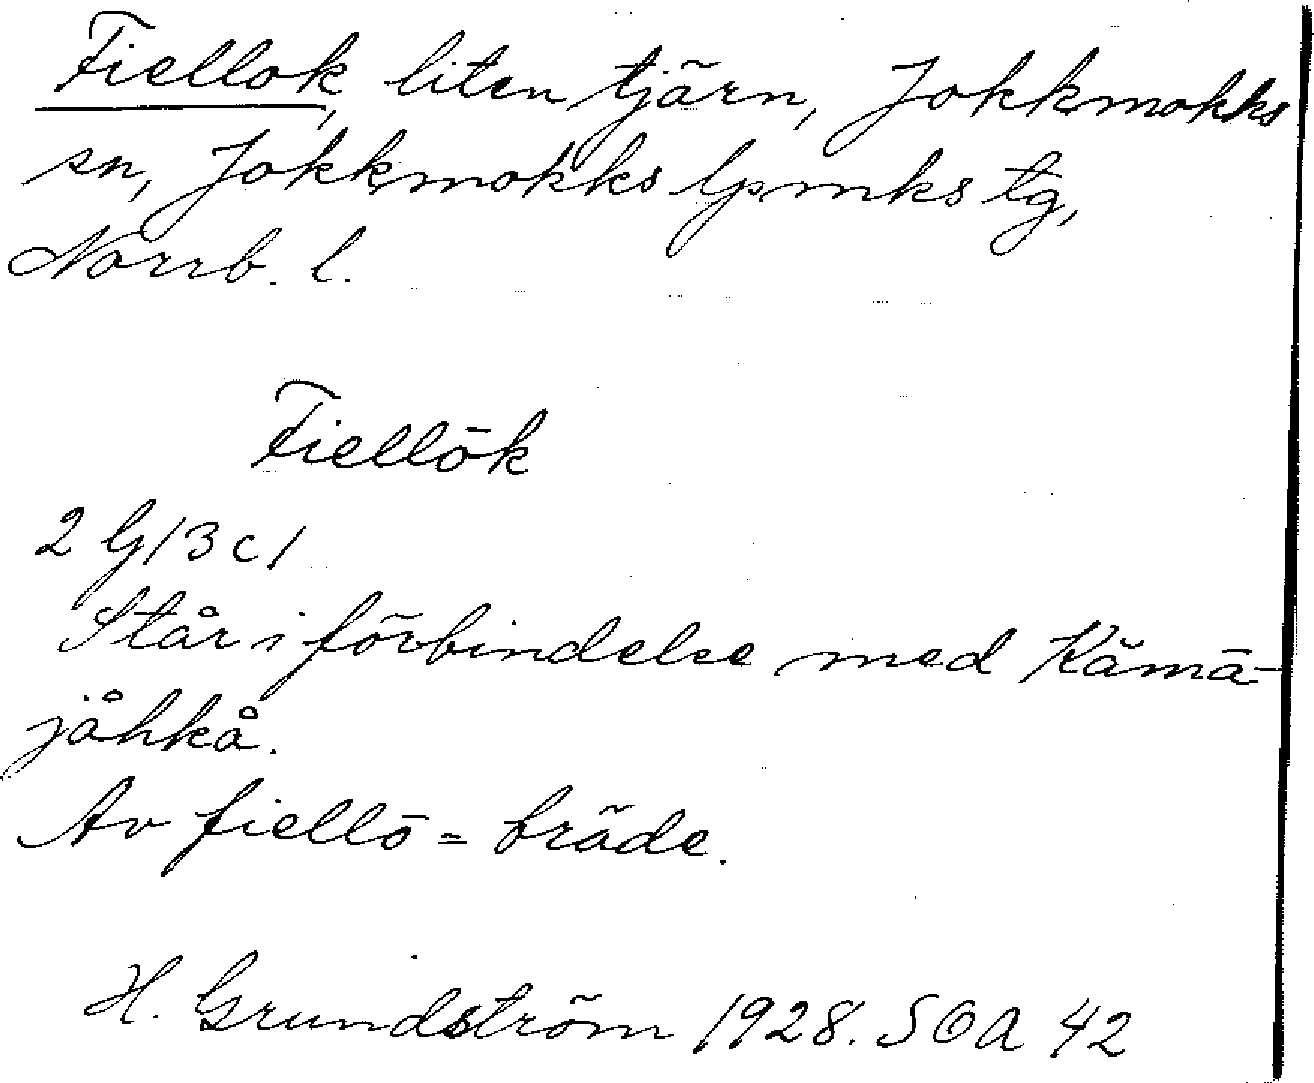 Fiellok, liten tjärn, Jokkmokks
sn, Jokkmokks lpmks tg,
Norrb. l.
Fiellōk
2 G/3 c/
Står i förbindelse med Kämā-
jåhkå.
Av fiellō = bräde.
H. Grundström 1928. SOA 42